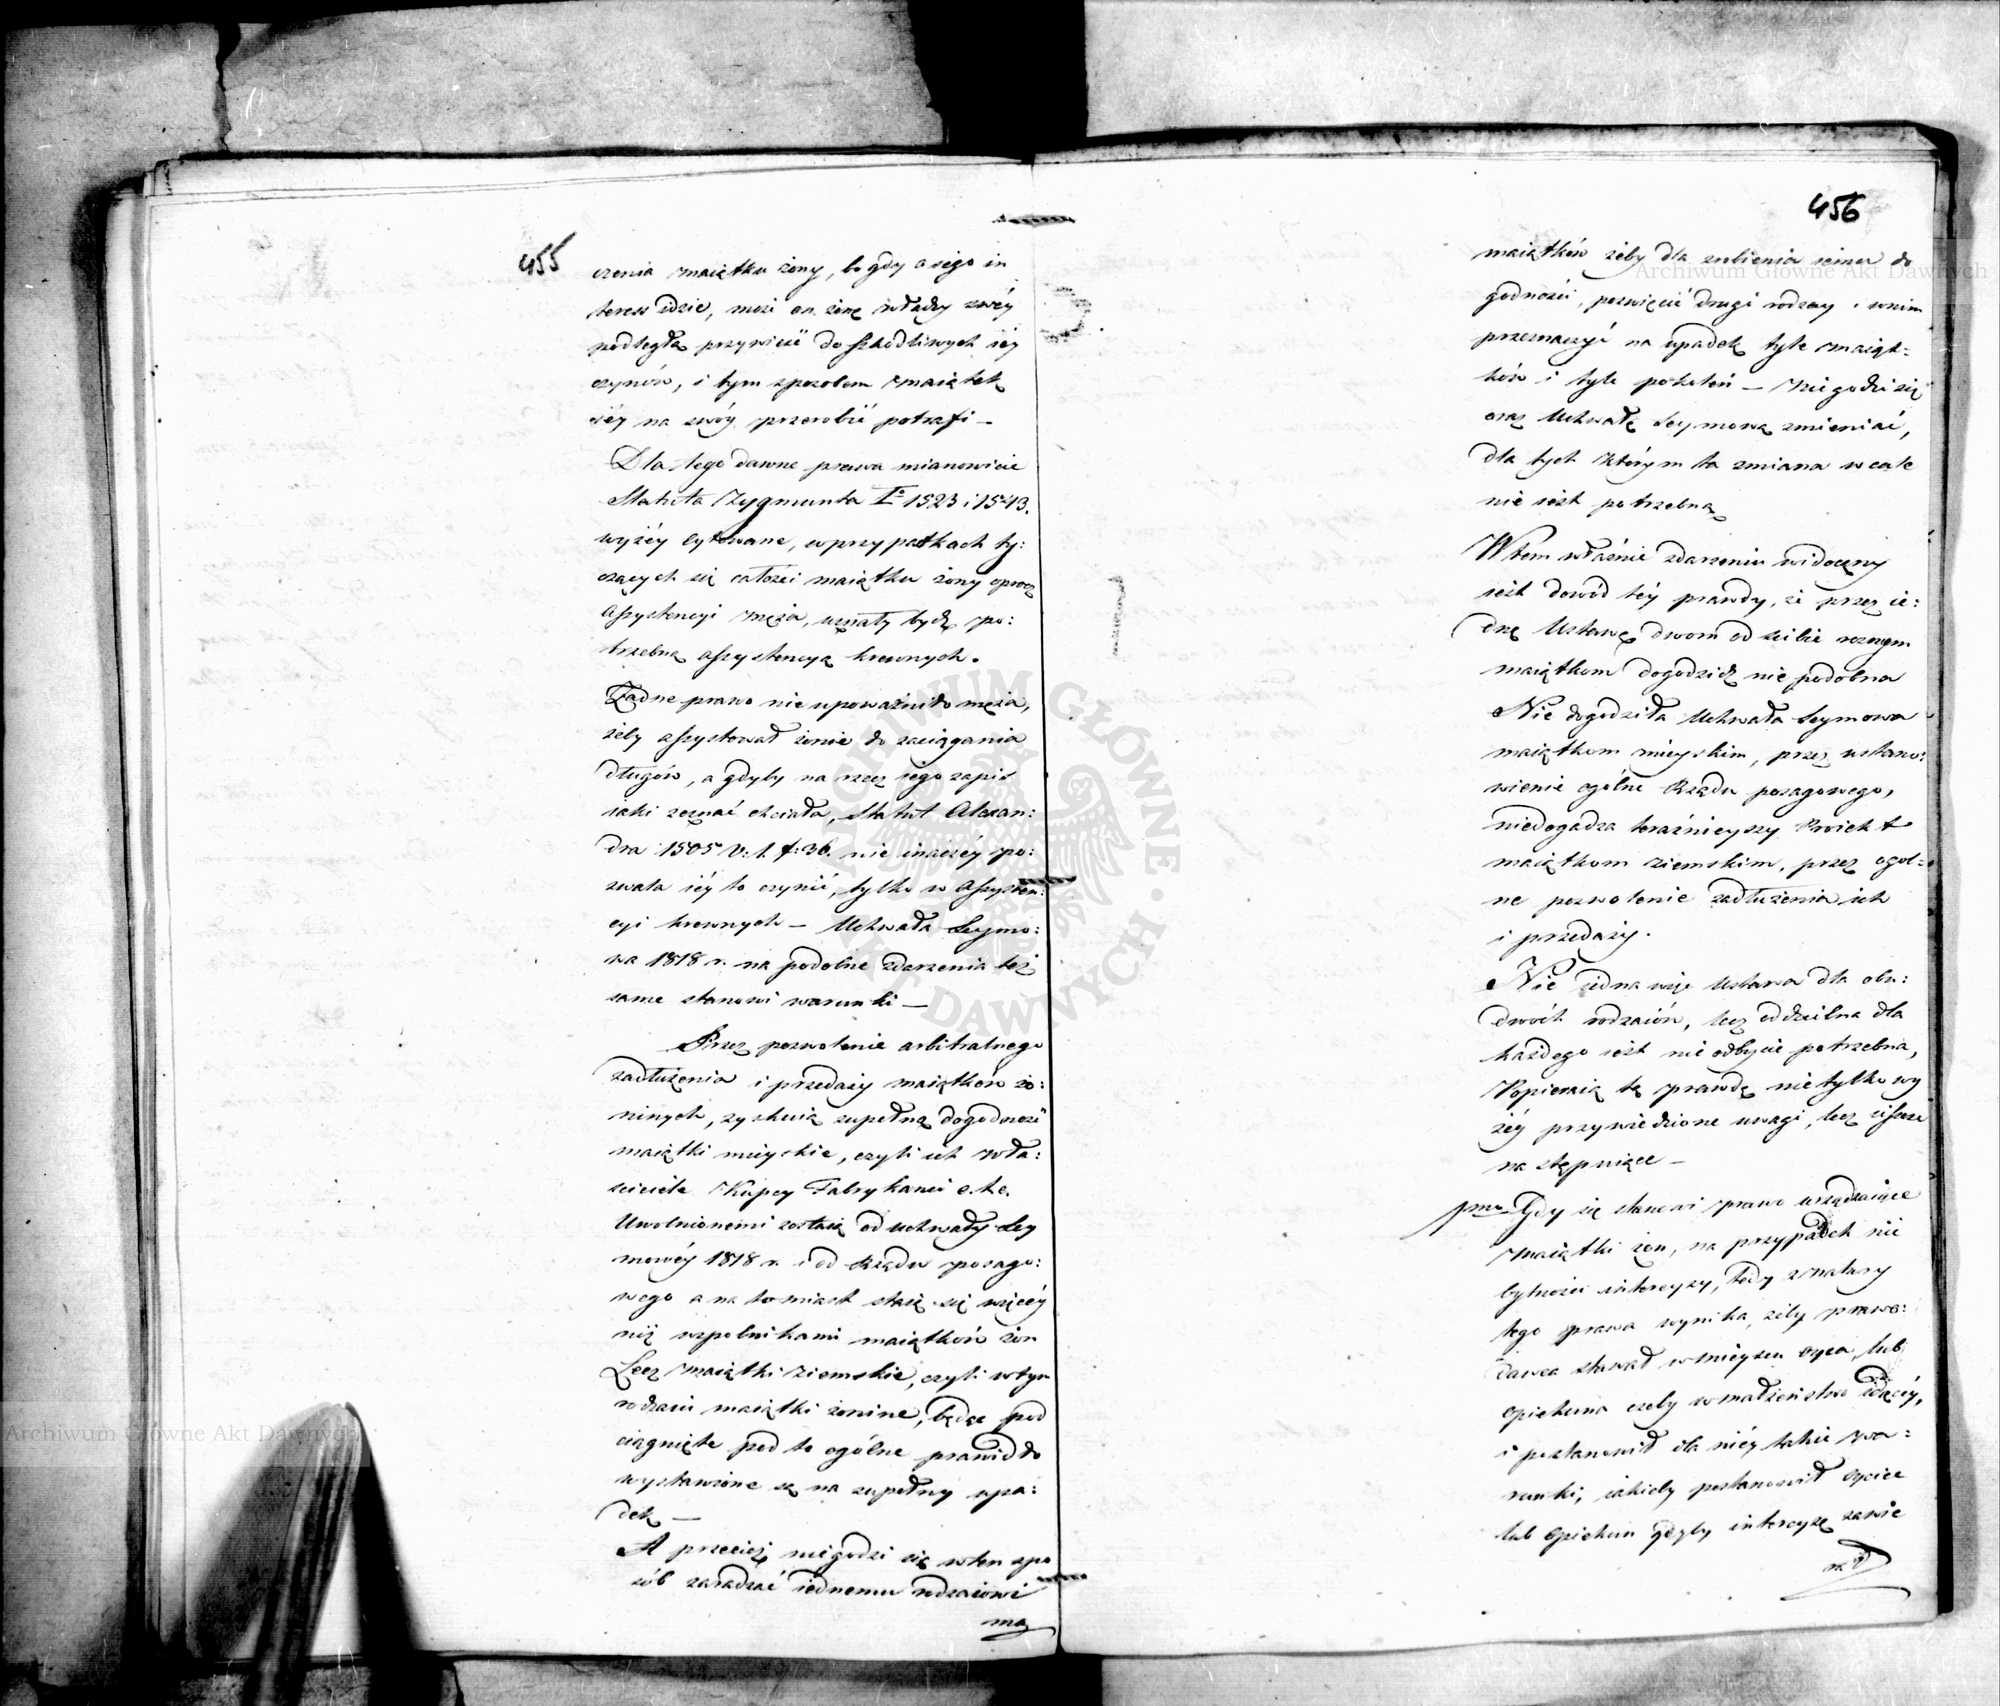 455
czenia maiątku żony, bo gdy o iego in
teress idzie, może on żonę władzy swéy
podległą przywieść do szkodliwych iéy
czynów, i tym sposobem maiątek
iéy na swóy przerobić potrafi —
Dla tego dawne prawa mianowicie
Statuta Zygmunta Iº 1523 i 1543.
wyżéy cytowane, w przypadkach ty:
czących się całości maiątku żony oprócz
assystencyi męża, uznały bydź po:
trzebną assystencyą krewnych.
Żadne prawo nie upoważniło męża,
żeby assystował żonie do zaciągania
długów, a gdyby na rzecz iego zapis
iaki zeznać chciała, Statut Alexan:
dra 1505 v: 1. f: 36. nie inaczéy po:
zwala iéy to czynić, tylko w assysten:
cyi krewnych — Uchwała Seymo:
wa 1818 r. na podobne zdarzenia też
same stanowi warunki —
Przez pozwolenie arbitralnego
zadłużenia i przedaży maiątków żo:
ninych, zyskuią zupełną dogodność
maiątki mieyskie, czyli ich wła:
ściciele Kupcy Fabrykanci e.t.c.
Uwolnionemi zostaią od uchwały Sey
mowéy 1818 r. i od Rządu posago:
wego a na tomiast staią się więcéy
niż wspólnikami maiątków żon
Lecz maiątki ziemskie, czyli w tym
rodzaiu maiątki żonine, będąc pod
ciągnięte pod to ogólne prawidło
wystawione są na zupełny upa:
dek —
A przecież niegodzi się w ten spo
sób zaradzać iednemu rodzaiowi
ma
456
maiątków żeby dla zrobienia iemu do
godności, poświęcić drugi rodzay i w nim
przeznaczyć na upadek tyle maiąt:
ków i tyle pokoleń — Niegodzi się
oraz Uchwałę Seymową zmieniać,
dla tych którym ta zmiana wcale
nie iest potrzebną
W tem właśnie zdarzeniu widoczny
iest dowód téy prawdy, że przez ie:
dnę Ustawę dwom od siebie roznym
maiątkom dogodzić nie podobna
Nie dogodziła Uchwała Seymowa
maiątkom mieyskim, przez ustano:
wienie ogólne Rządu posagowego,
niedogadza teraźnieyszy Proiekt
maiątkom ziemskim, przez ogol:
ne pozwolenie zadłużenia ich
i przedaży.
Nie iedna więc Ustawa dla obu:
dwóch rodzaiów, lecz oddzielna dla
każdego iest nieodbycie potrzebna,
Popieraią tę prawdę nietylko wy
żéy przywiedzione uwagi, lecz ieszcze
następuiące —
pmo Gdy się stanowi prawo urządzaiące
maiątki żon, na przypadek nie
bytności intercyzy, tedy z natury
tego prawa wynika, żeby prawo:
dawca stawał w mieyscu oyca, lub
opiekuna osoby w małżeństwo idącéy,
i postanowił dla niéy takie wa:
runki, iakieby postanowił oyciec
lub opiekun gdyby intercyzę zawie
rał